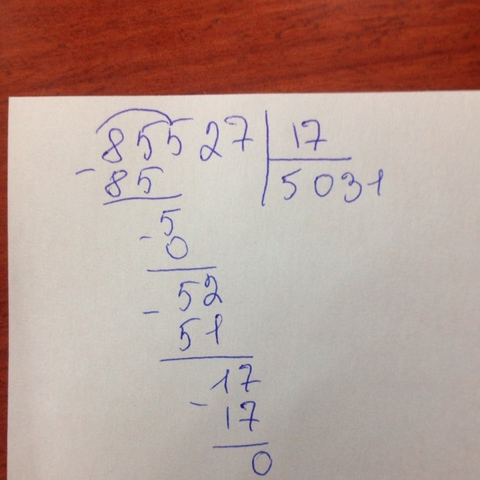 85527 17
- 85 5031
5
- 0
52
- 51
17
- 17
0